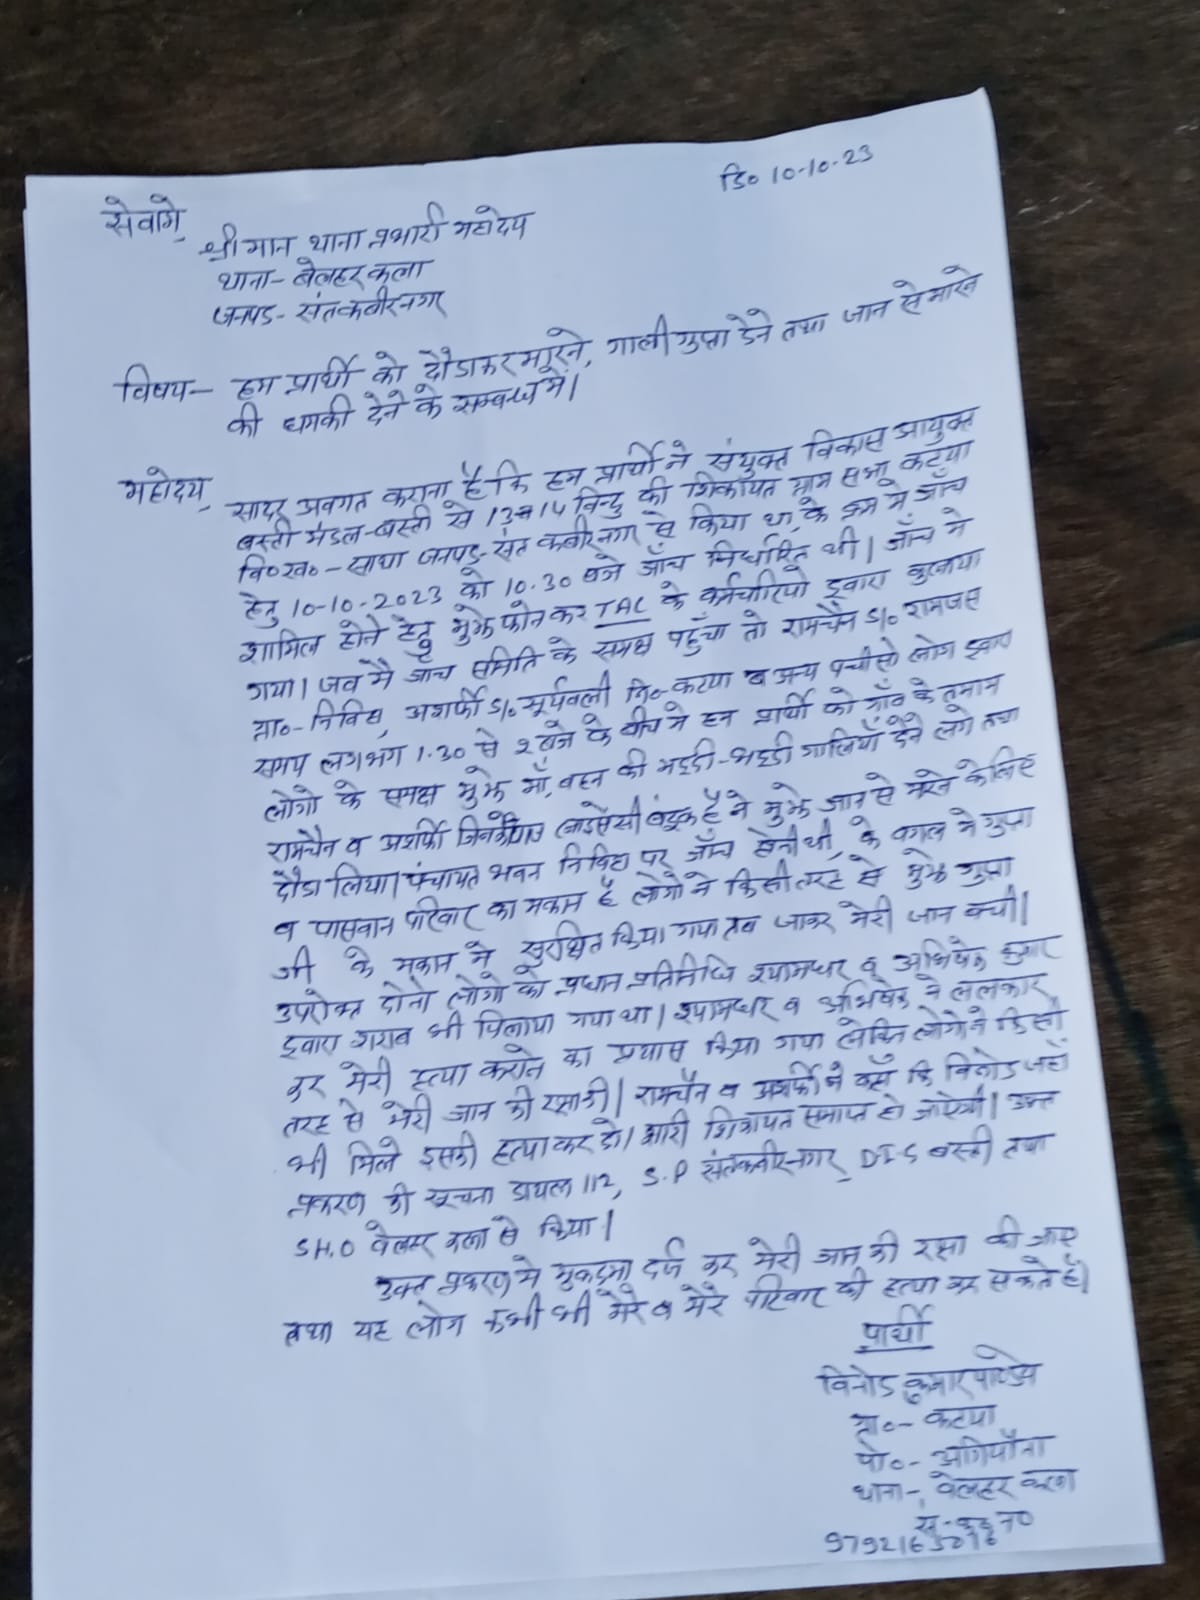 दि० 10-10-23
सेवामे,
श्रीमान थाना प्रभारी महोदय
थाना- बेलहर कला
जनपद- संतकबीरनगर
विषय- हम प्रार्थी को दौडाकर मारने, गाली गुप्ता देने तथा जान से मारने
की धमकी देने के सम्बन्ध में।
महोदय,
सादर अवगत कराना है कि हम प्रार्थी ने संयुक्त विकास आयुक्त
बस्ती मंडल-बस्ती से 13 14 विन्दु की शिकायत ग्राम सभा कटया
वि०ख०- साथा जनपद- संत कबीरनगर से किया था, के क्रम मे जाँच
हेतु 10-10-2023 को 10.30 बजे जाँच निर्धारित थी। जाँच मे
शामिल होने हेतु मुझे फोन कर TAC के कर्मचारियो द्वारा बुलाया
गया। जव मै जाँच समिति के समक्ष पहुँचा तो रामचैन S/o रामजस
ग्रा०- निविहा, अशर्फी S/o सूर्यवली नि०- कटया व अन्य पचीसो लोग द्वारा
समय लगभग 1.30 से 2 बजे के बीच मे हम प्रार्थी को गाँव के तमाम
लोगो के समक्ष मुझे माँ, वहन की भद्दी-भद्दी गालियाँ देने लगे तथा
रामचैन व अशर्फी जिनके लाइसेंसी बंदूक है ने मुझे जान से मारने के लिए
दौडा लिया। पंचायत भवन निविहा पर जाँच होनी थी, के वगल मे गुप्ता
व पासवान परिवार का मकान है लोगो ने किसी तरह से मुझे गुप्ता
जी के मकान मे सुरक्षित किया गया तव जाकर मेरी जान वची।
उपरोक्त दोनो लोगो को प्रधान प्रतिनिधि श्यामधर व अभिषेक कुमार
द्वारा शराव भी पिलाया गया था। श्यामधर व अभिषेक ने ललकार
कर मेरी हत्या कराने का प्रयास किया गया लेकिन लोगो ने किसी
तरह से मेरी जान की रक्षा की। रामचैन व अशर्फी ने कहा कि विनोद जहाँ
भी मिले इसकी हत्या कर दो। सारी शिकायत समाप्त हो जायेगी। उक्त
प्रकरण की सूचना डायल 112, S.P संतकबीरनगर, DIG बस्ती तथा
S.H.O वेलहर कला से किया।
उक्त प्रकरण मे मुकदमा दर्ज कर मेरी जान की रक्षा की जाए
तथा यह लोग कभी भी मेरे व मेरे परिवार की हत्या कर सकते है।
प्रार्थी
विनोद कुमार पाण्डेय
ग्रा०- कटया
पो०- अगियौना
थाना- वेलहर कला